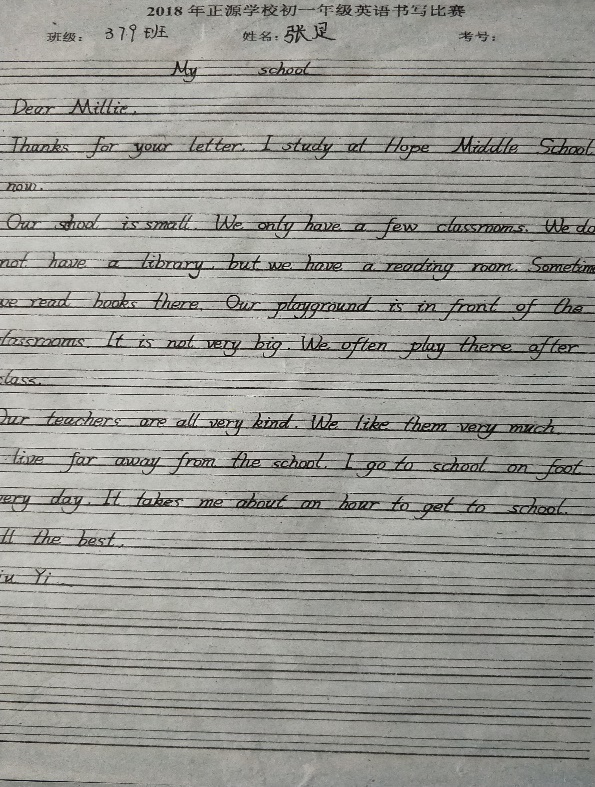 2018年正源学校初一年级英语书写比赛
班级: 379班 姓名: 张足 考号:
My school
Dear Millie,
Thanks for your letter. I study at Hope Middle School
now.
Our shool is small. We only have a few classrooms. We do
not have a library, but we have a reading room. Sometime
we read books there. Our playground is in front of the
lassrooms. It is not very big. We often play there after
class.
Our teachers are all very kind. We like them very much.
live far away from the school. I go to school on foot
very day. It takes me about an hour to get to school.
ll the best,
iu Yi